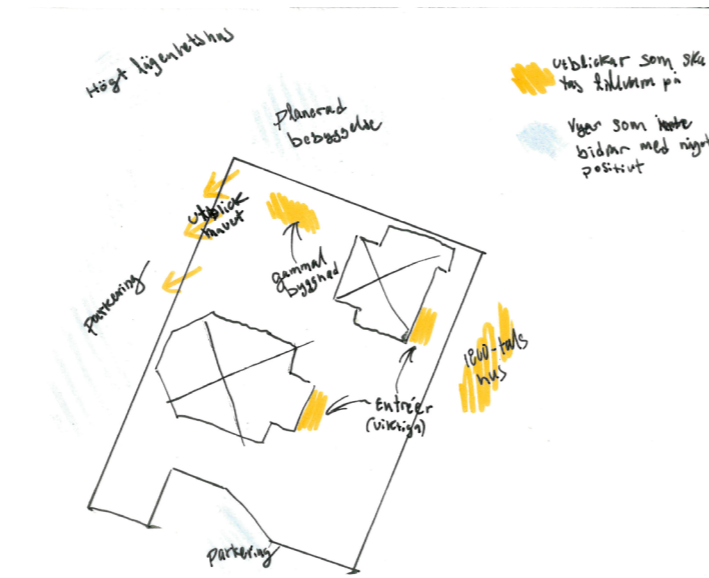 Högt lägenhetshus
Planerad
bebyggelse
utblickar som ska
tas tillvara på
Vyer som inte
bidrar med något
positivt
utblick
havet
gammal
byggnad
Parkering
1800-tals
hus
Entréer
(viktiga)
Parkering